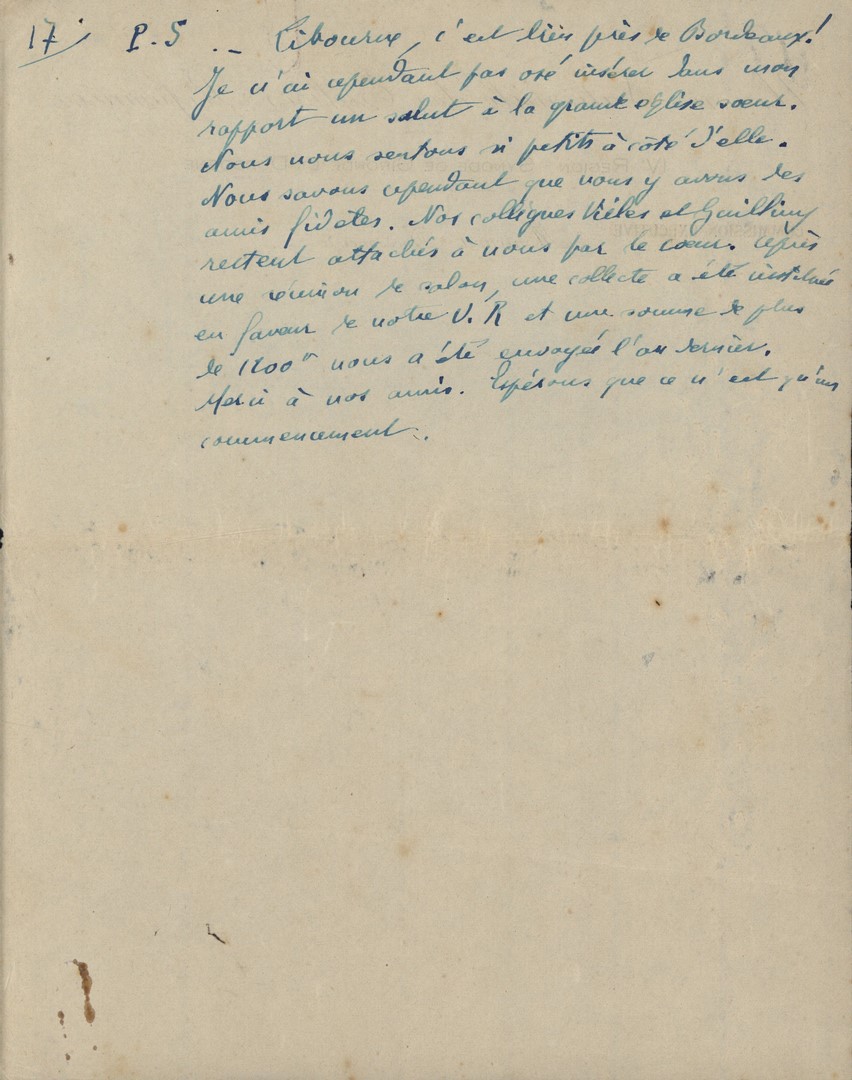 17/ P.S .- Libourne, c'est bien près de Bordeaux!
Je n'ai cependant pas osé insérer dans mon
rapport un salut à la grande église soeur.
Nous nous sentons si petits à côté d'elle.
Nous savons cependant que nous y avons des
amis fidèles. Nos collègues et
restent attachés à nous par le coeur. Après
une réunion de salon, une collecte a été instituée
en faveur de notre U.R et une somme de plus
de nous a été envoyée l'an dernier.
Merci à nos amis. Espérons que ce n'est qu'un
commencement.